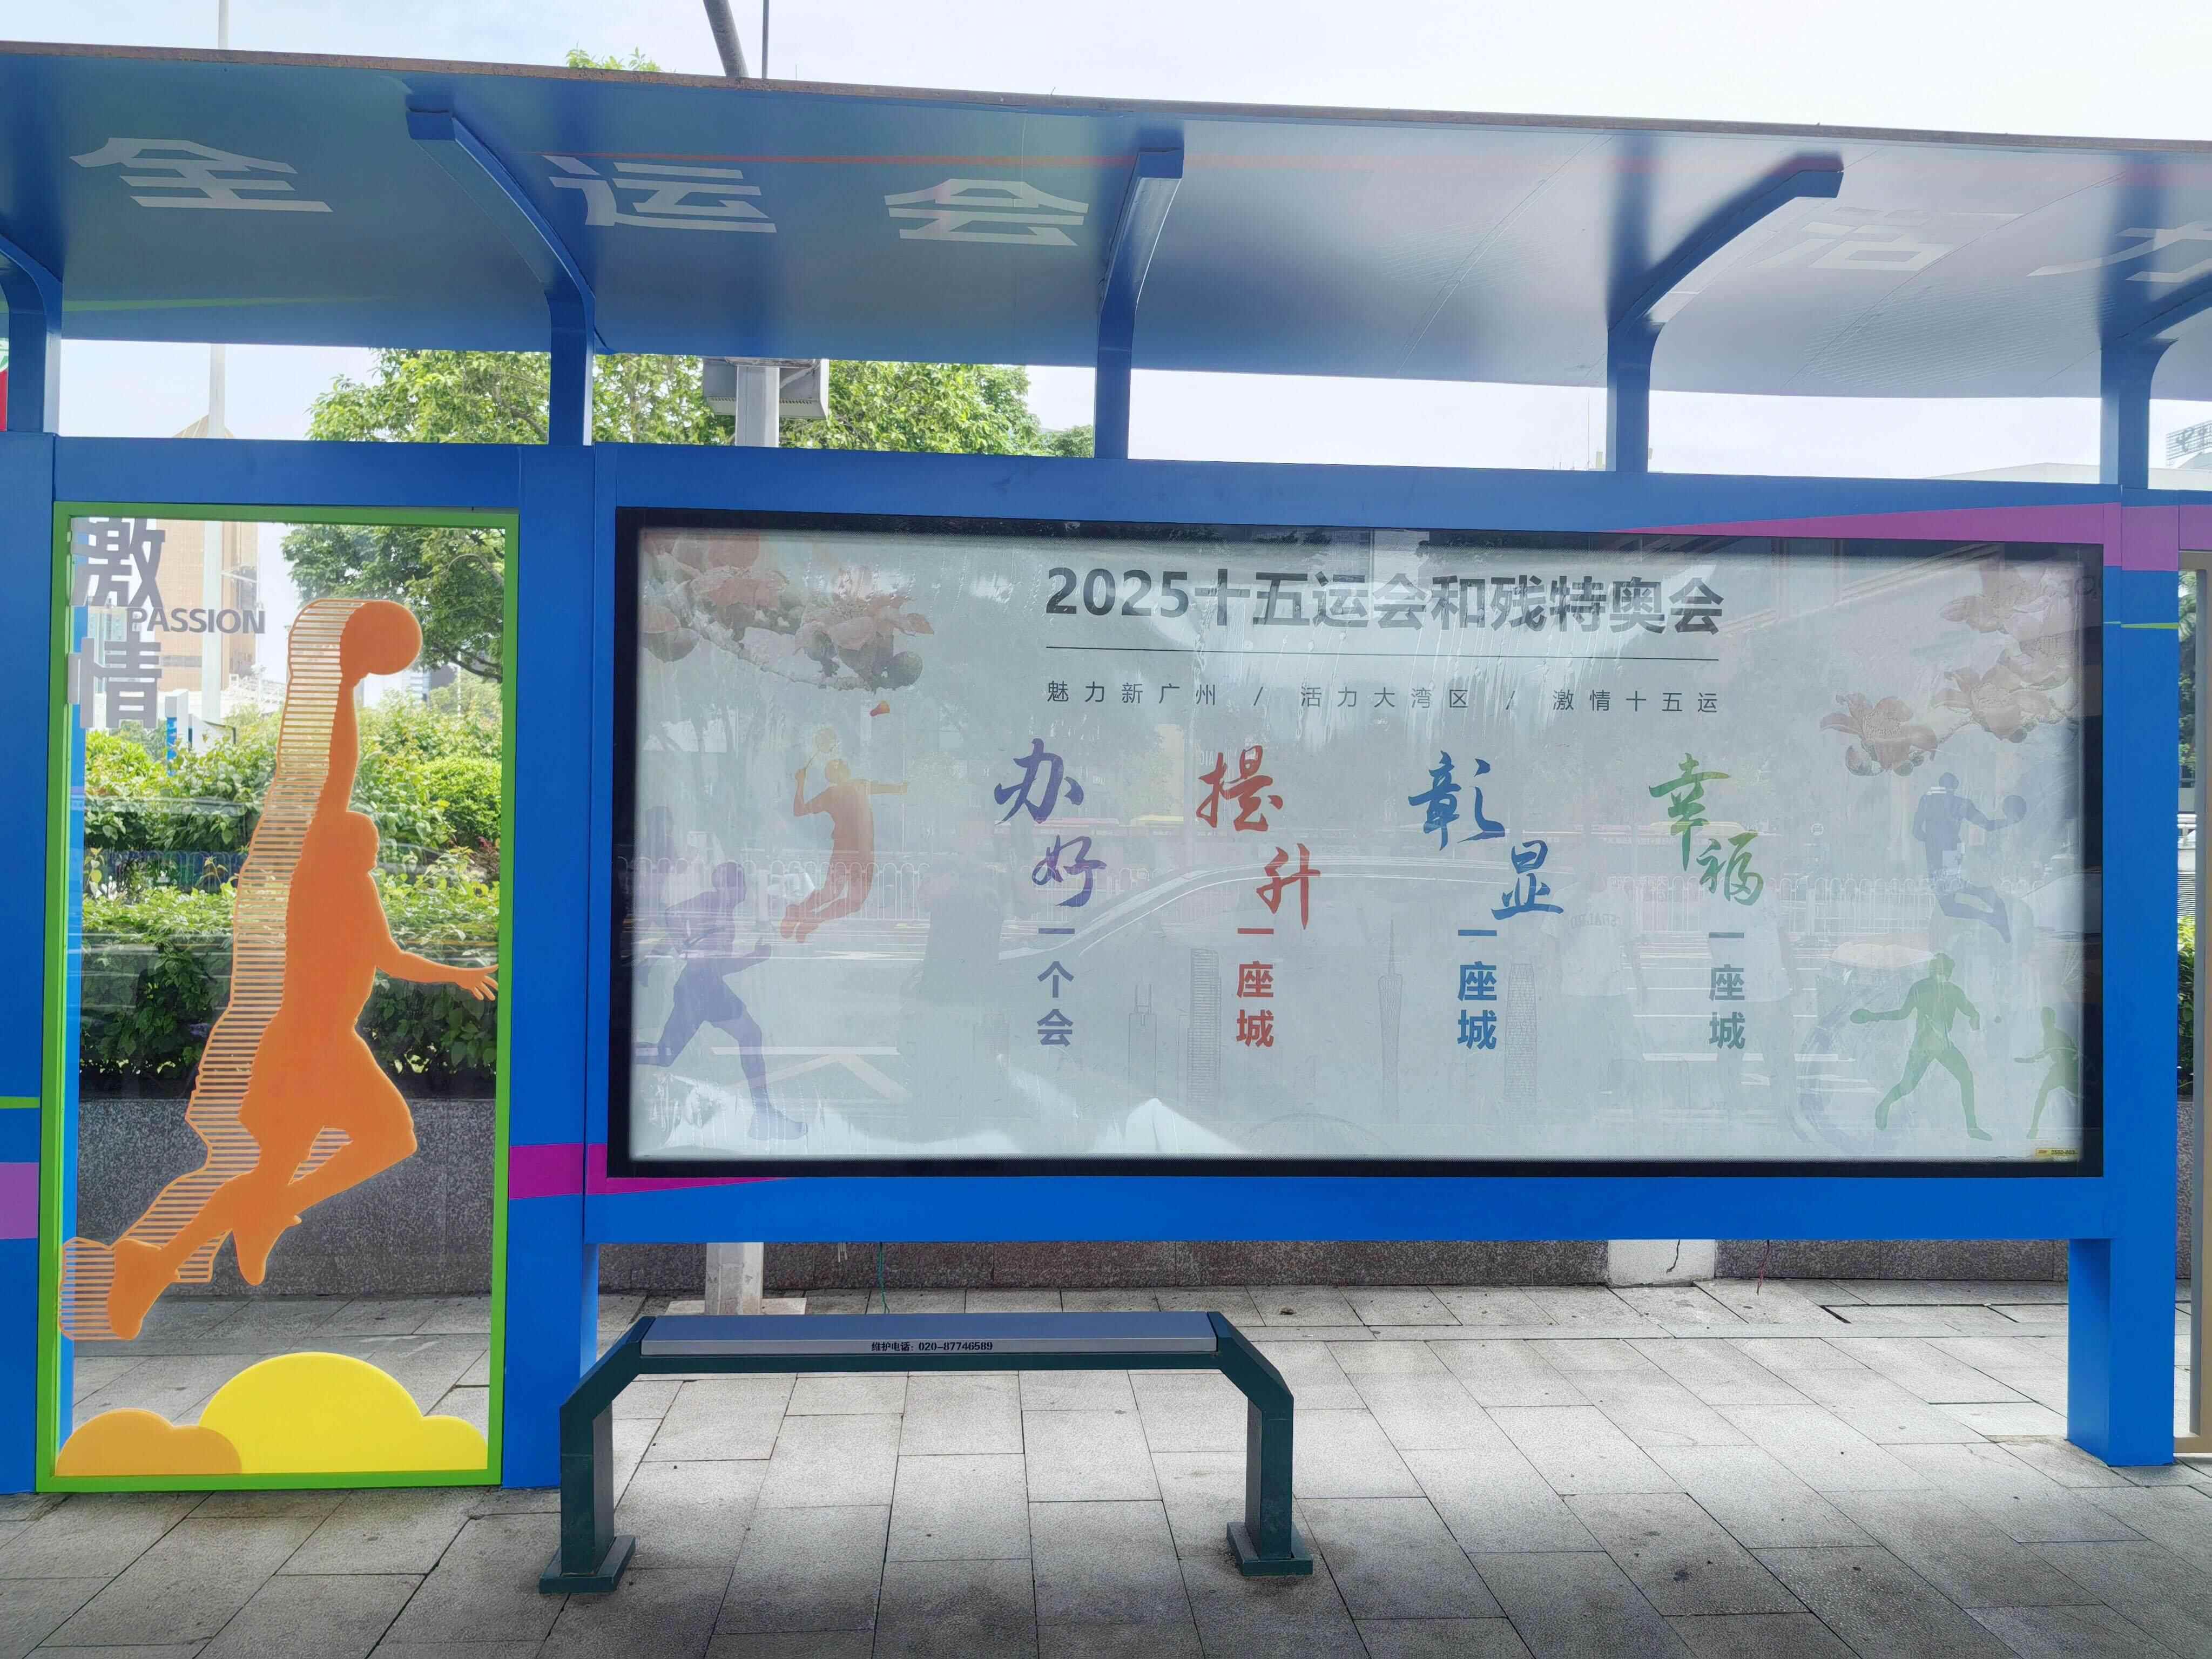 全运会
活力
激情
PASSION
2025十五运会和残特奥会
魅力新广州 / 活力大湾区 / 激情十五运
办好一个会
提升一座城
彰显一座城
幸福一座城
维护电话：020-87746589